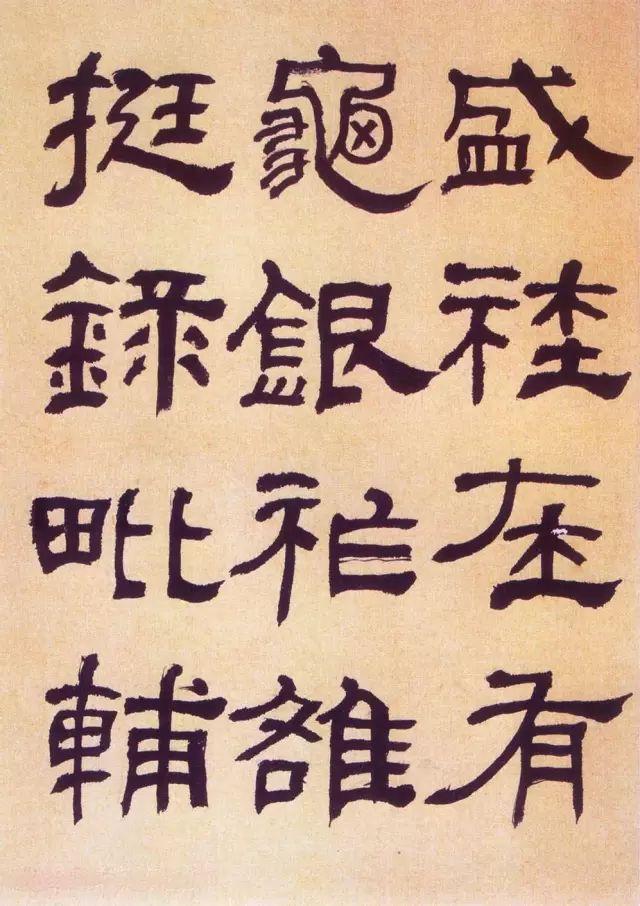 盛社在有
龜銀祚雒
挺錄毗輔